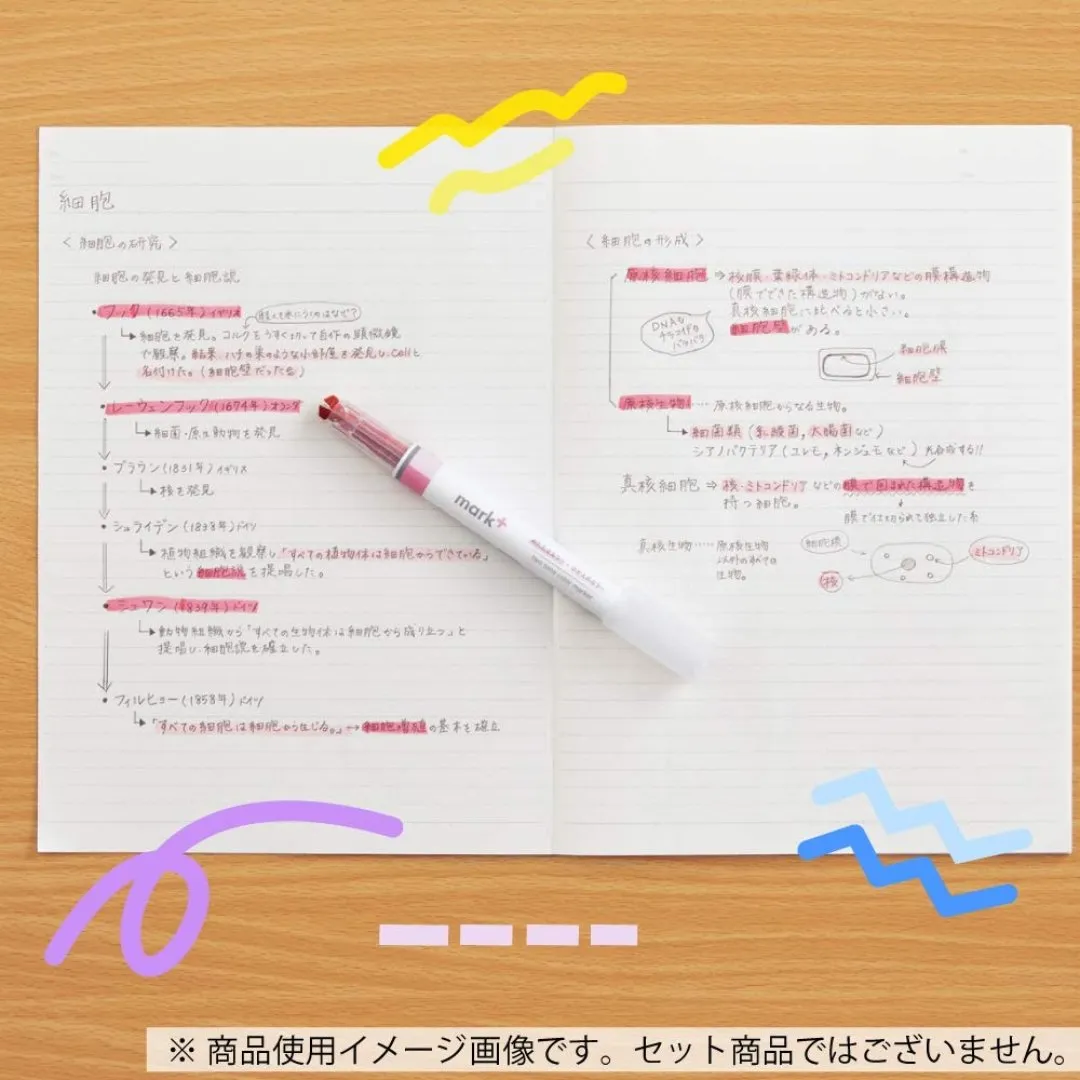 細胞
〈細胞の研究〉
細胞の発見と細胞説
・フック(1665年)イギリス
細胞を発見。コルクをうすく切って自作の顕微鏡
で観察。結果、ハチの巣のような小部屋を発見し、cellと
名付けた。(細胞壁だった)
・レーウェンフック(1674年)オランダ
細菌・原生動物を発見
・ブラウン(1831年)イギリス
核を発見
・シュライデン(1838年)ドイツ
植物組織を観察し「すべての植物体は細胞からできている」
という細胞説を提唱した。
・シュワン(1839年)ドイツ
動物組織から「すべての生物体は細胞から成り立つ」と
提唱し、細胞説を確立した。
・フィルヒョー(1858年)ドイツ
「すべての細胞は細胞から生じる。」→細胞増殖の基本を確立
〈細胞の形成〉
原核細胞⇒核膜・葉緑体・ミトコンドリアなどの膜構造物
(膜でできた構造物)がない。
真核細胞に比べると小さい。
細胞壁がある。
DNAも
細胞膜
細胞壁
原核生物……原核細胞からなる生物。
細菌類(乳酸菌,大腸菌など)
シアノバクテリア(ユレモ,ネンジュモなど)
光合成する!!
真核細胞⇒核・ミトコンドリアなどの膜で囲まれた構造物を
持つ細胞。
膜で仕切られて独立した系
真核生物……原核生物
以外のすべての
生物。
細胞膜
ミトコンドリア
核
mark+
two tone color marker
※ 商品使用イメージ画像です。セット商品ではございません。